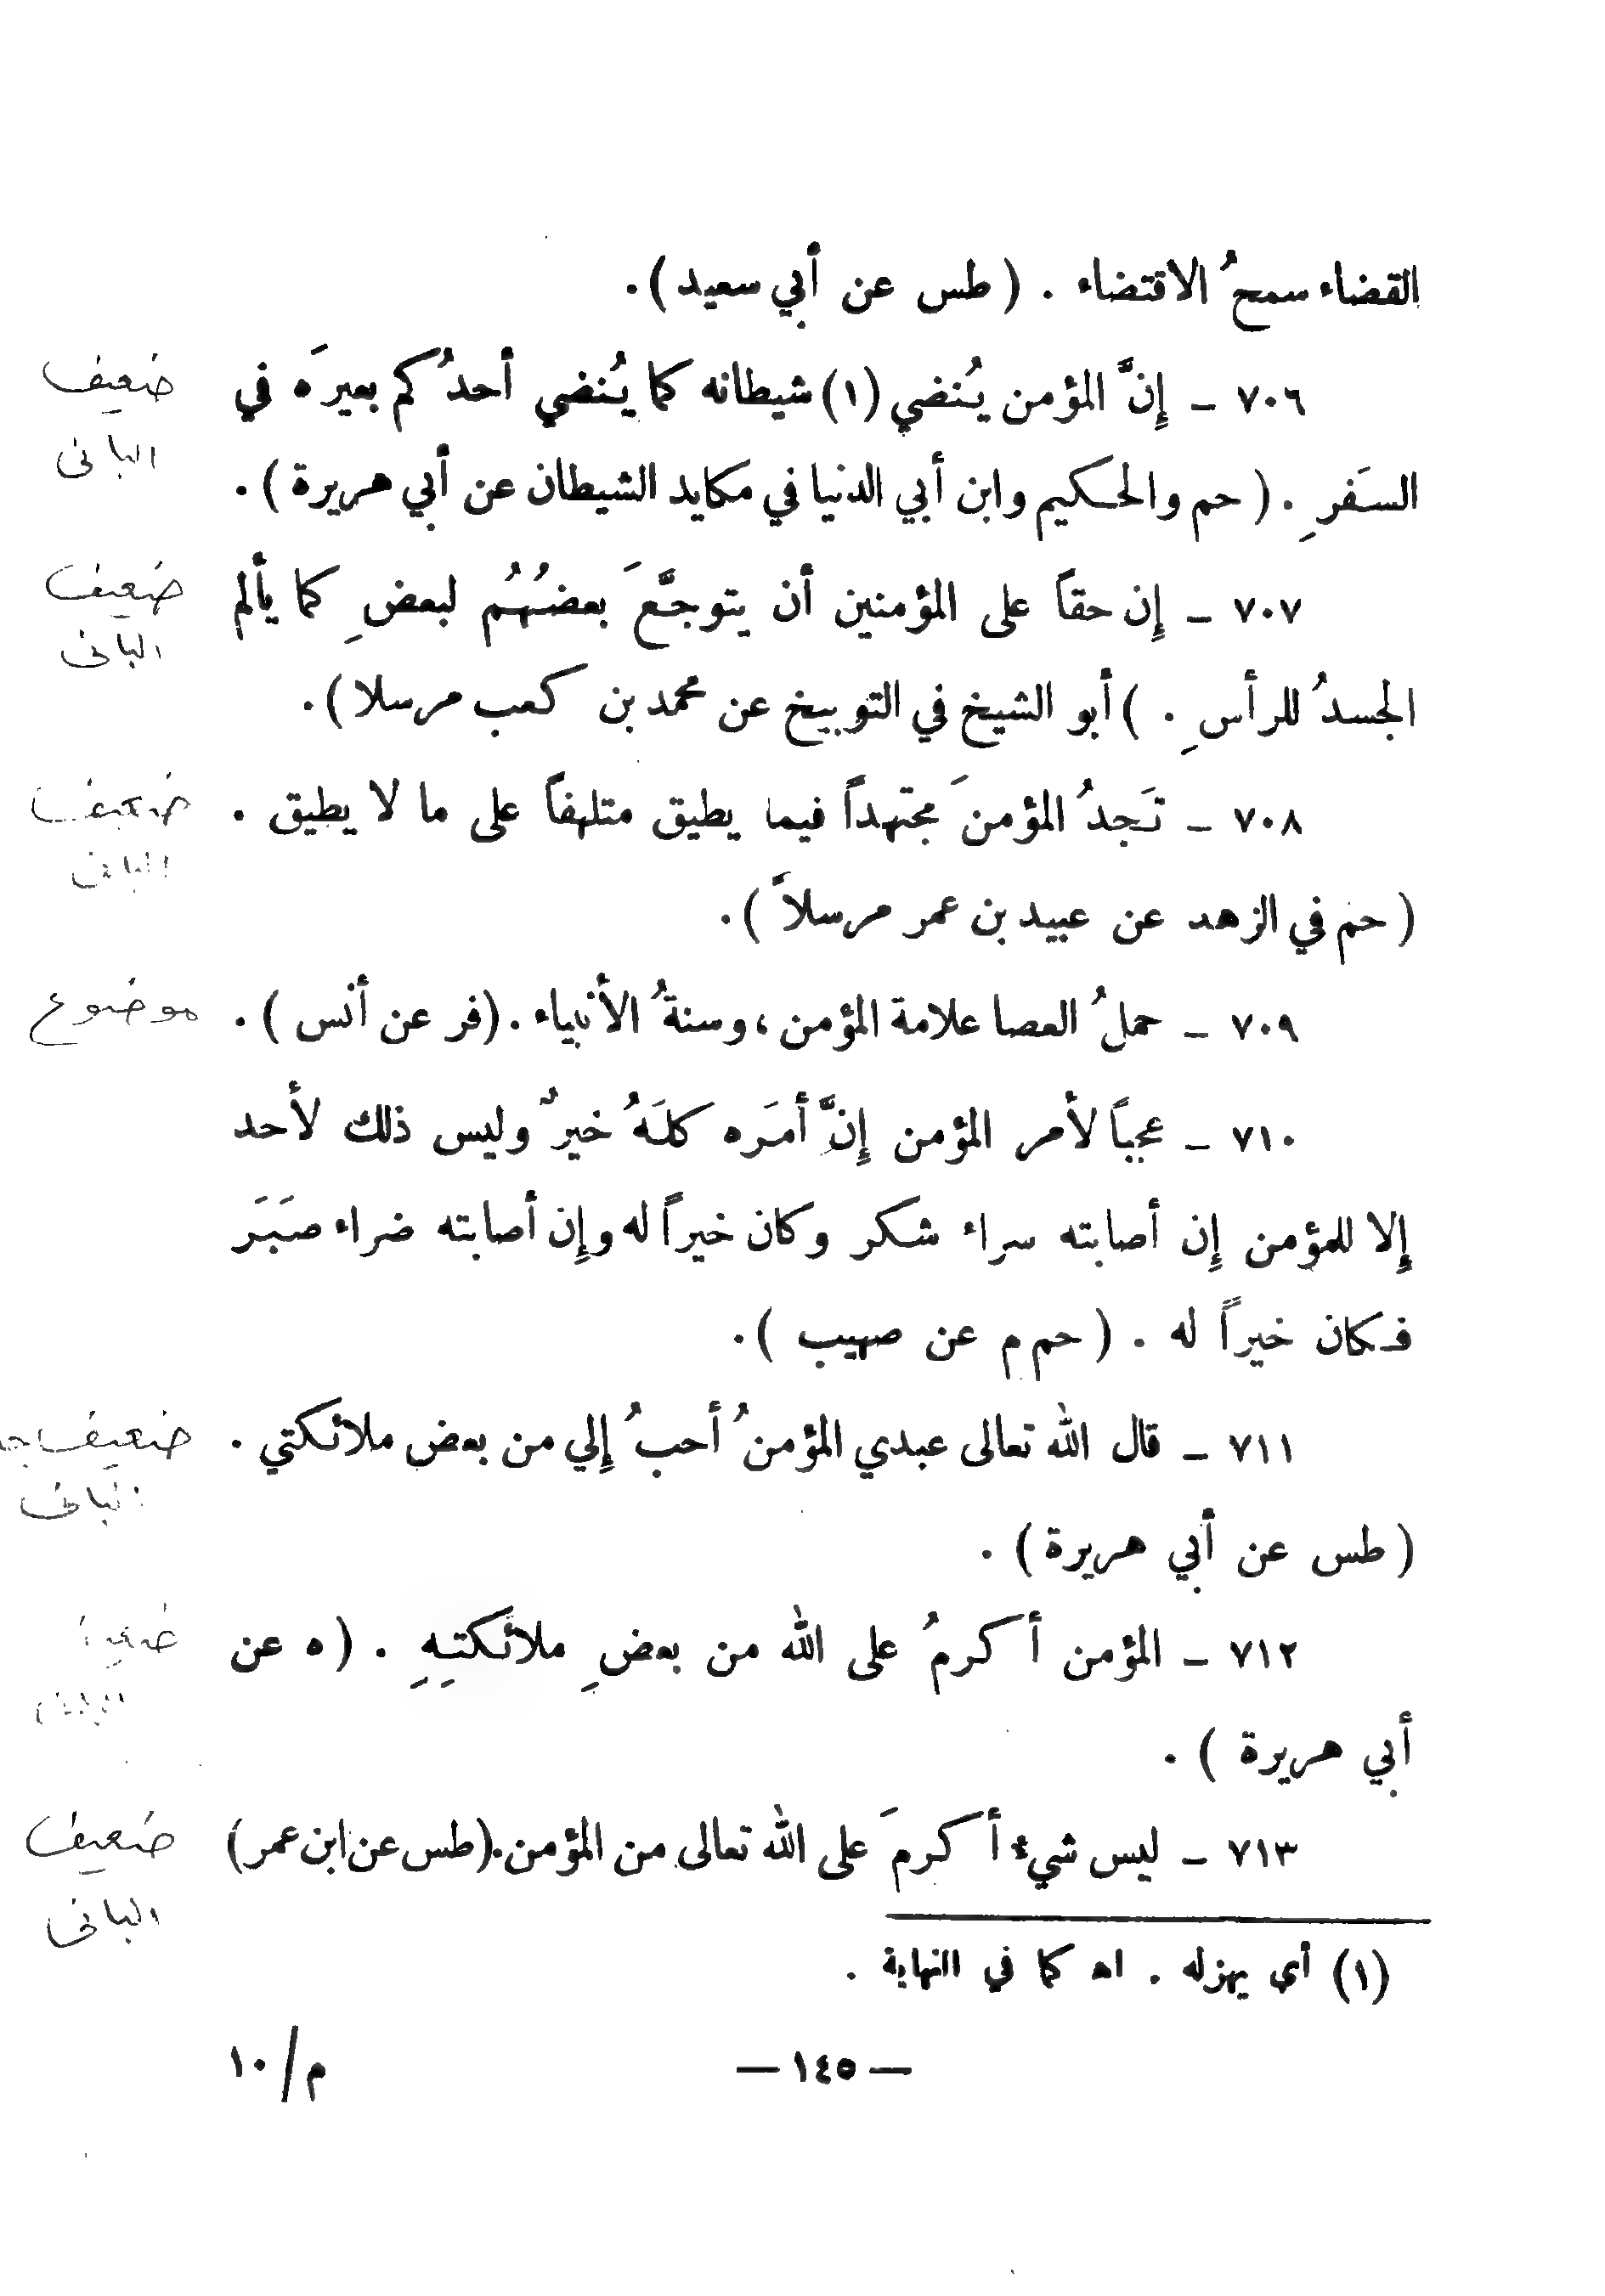 القضاء سمحُ الاقتضاء . ( طس عن أبي سعيد ) .
٧٠٦ ـ إِنَّ المؤمن يُنضي (١) شيطانه كما يُنضي أحدُكم بعيرَه في
ضعيف
السفَرِ . ( حم والحكيم وابن أبي الدنيا في مكايد الشيطان عن أبي هريرة ) .
البانى
٧٠٧ ـ إِن حقاً على المؤمنين أن يتوجَّعَ بعضُهُم لبعضٍ كما يألم
ضعيف
البانى
الجسدُ للرأسِ . ) أبو الشيخ في التوبيخ عن محمد بن كعب مرسلا ) .
٧٠٨ ـ تَجدُ المؤمنَ مجتهداً فيما يطيق متلهفاً على ما لا يطيق .
ضعيف
البانى
( حم في الزهد عن عبيد بن عمر مرسلاً ) .
٧٠٩ ـ حملُ العصا علامة المؤمن ، وسنةُ الأنبياء . ( فر عن أنس ) .
موضوع
٧١٠ ـ عجباً لأمر المؤمن إِنَّ أمَره كلَهُ خيرٌ وليس ذلك لأحد
إِلا للمؤمن إِن أصابته سراء شكر وكان خيراً له وإِن أصابته ضراء صبَرَ
فكان خيراً له . ( حم م عن صهيب ) .
٧١١ ـ قال الله تعالى عبدي المؤمنُ أحبُ إِلي من بعض ملائكتي .
ضعيف
البانى
( طس عن أبي هريرة ) .
٧١٢ ـ المؤمن أكرمُ على الله من بعضِ ملائكتِهِ . ( ه عن
أبي هريرة ) .
٧١٣ ـ ليس شيء أكرمَ على الله تعالى من المؤمن . ( طس عن ابن عمر )
ضعيف
البانى
(١) أي يهزله . اه كما في النهاية .
— ١٤٥ —
م/١٠